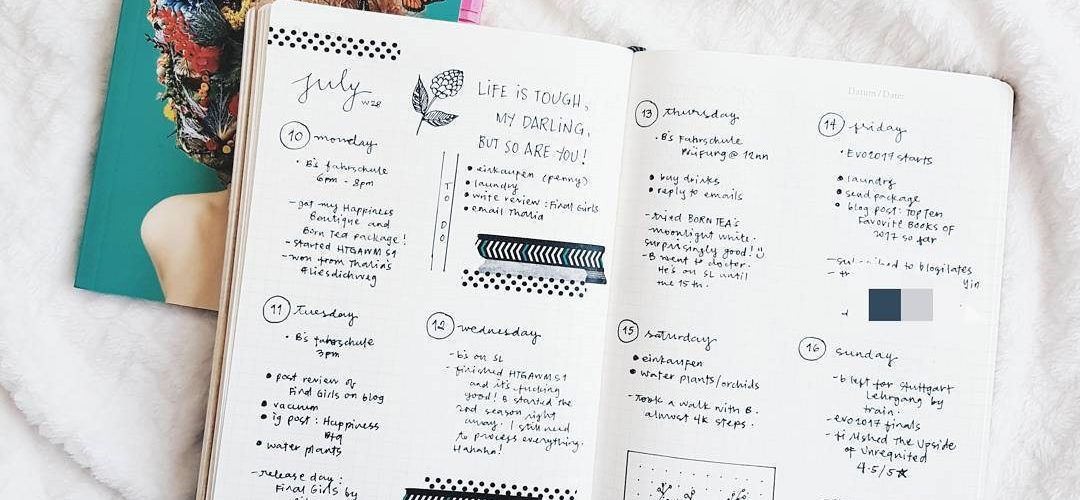 july W28
LIFE IS TOUGH,
MY DARLING,
BUT SO ARE YOU!
10 monday
• B's fahrschule
6pm - 8pm
- got my Happiness
Boutique and
Born Tea package!
- started HTGAWM S1
- won from Thalia's
#liesdichweg
TO DO
• einkaufen (penny)
• laundry
• write review: Final Girls
• email Thalia
11 tuesday
• B's fahrschule
3pm
• post review of
Final Girls on blog
• vacuum
• ig post: Happiness
Btq
• water plants
- release day:
Final Girls by
12 wednesday
- b's on SL
- finished HTGAWM S1
and it's fucking
good! B started the
2nd season right
away. I still need
to process everything.
Hahaha!
13 thursday
• B's Fahrschule
Prüfung @ 12nn
• buy drinks
• reply to emails
- tried BORN TEA's
moonlight white.
surprisingly good!
- B went to doctor.
He's on SL until
the 15th.
Datum/Date:
14 friday
• Evo2017 starts
• laundry
• send package
• blog post: Top Ten
Favorite Books of
2017 so far
to blogilates
Yin
15 saturday
• einkaufen
• water plants/orchids
- took a walk with B.
almost 4k steps.
16 sunday
- b left for Stuttgart
Lehrgang by
train.
- evo2017 finals
- finished The Upside
of Unrequited
4.5/5★